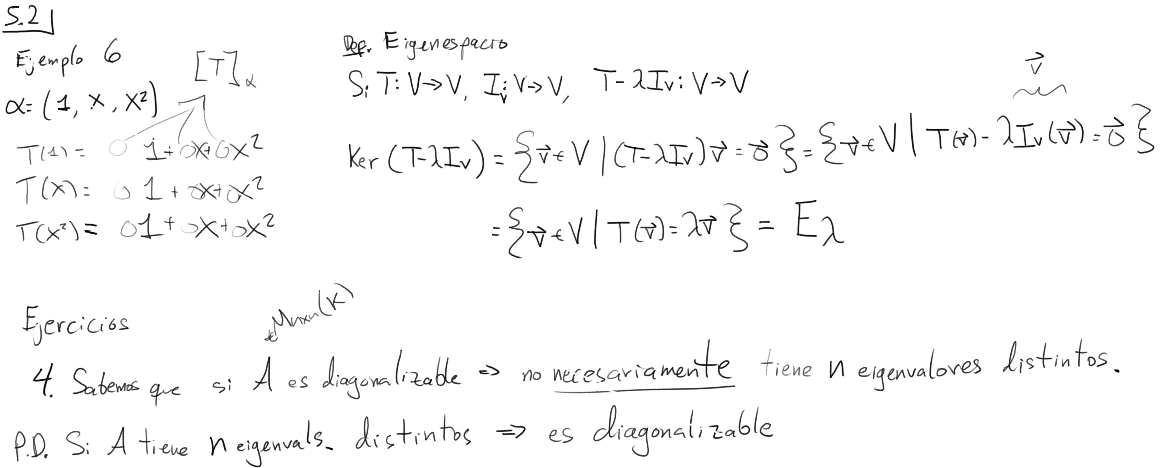 5.2
Ejemplo 6
[T]α
α=(1, x, x²)
T(1)= 0 1+0x+0x²
T(x)= 0 1+0x+0x²
T(x²)= 01+0x+0x²
Def. Eigenespacio
Si T: V→V, I_V: V→V, T-λI_V: V→V
Ker (T-λI_V) = {v⃗∈V | (T-λI_V)v⃗=0⃗} = {v⃗∈V | T(v⃗)-λI_V(v⃗)=0⃗}
v⃗
= {v⃗∈V | T(v⃗)=λv⃗} = E_λ
Ejercicios
∈ M_{n×n}(K)
4. Sabemos que si A es diagonalizable ⇒ no necesariamente tiene n eigenvalores distintos.
P.D. Si A tiene n eigenvals. distintos ⇒ es diagonalizable